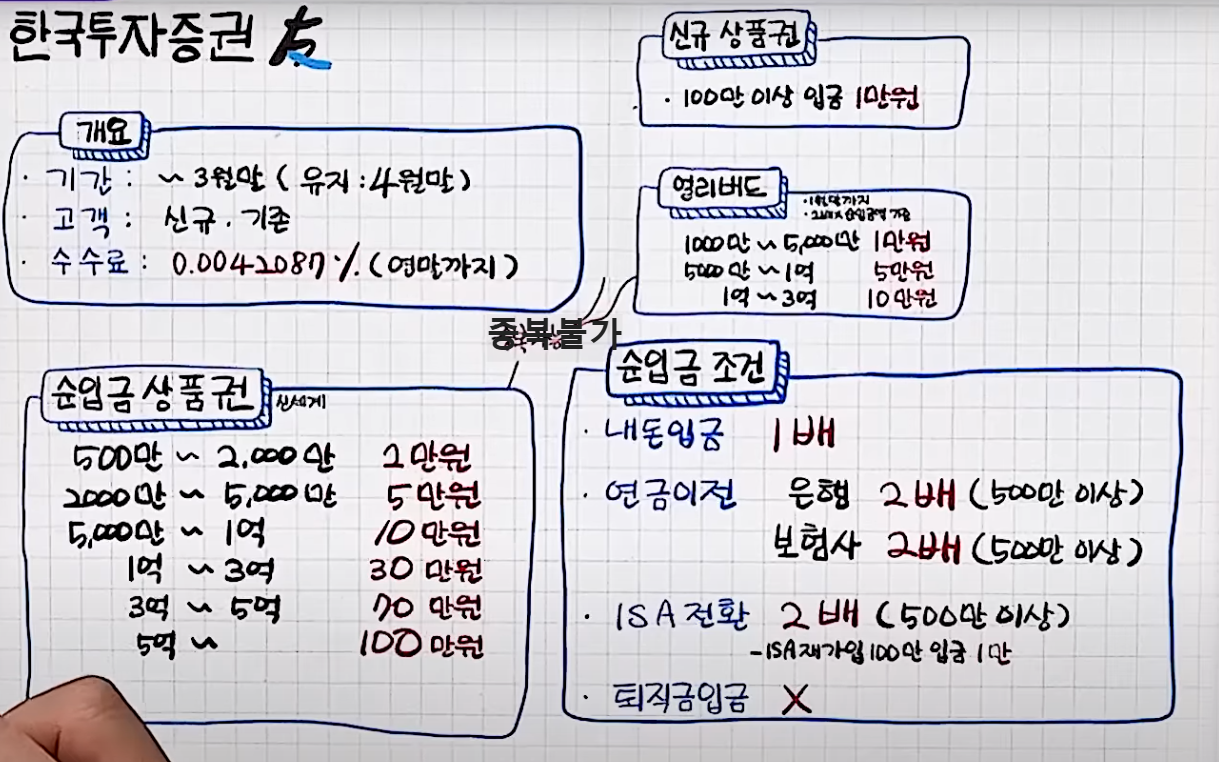 한국투자증권
신규 상품권
· 100만 이상 입금 1만원
개요
· 기간 : ~ 3월말 ( 유지 : 4월말 )
· 고객 : 신규 . 기존
· 수수료 : 0.0042087% (연말까지)
얼리버드
1000만 ~ 5,000만 1만원
5000만 ~ 1억 5만원
1억 ~ 3억 10만원
중복불가
순입금 상품권 신세계
500만 ~ 2,000만 2만원
2000만 ~ 5,000만 5만원
5,000만 ~ 1억 10만원
1억 ~ 3억 30만원
3억 ~ 5억 70만원
5억 ~ 100만원
순입금 조건
· 내돈입금 1배
· 연금이전 은행 2배 (500만 이상)
보험사 2배 (500만 이상)
· ISA 전환 2배 (500만 이상)
- ISA 재가입 100만 입금 1만
· 퇴직금입금 X